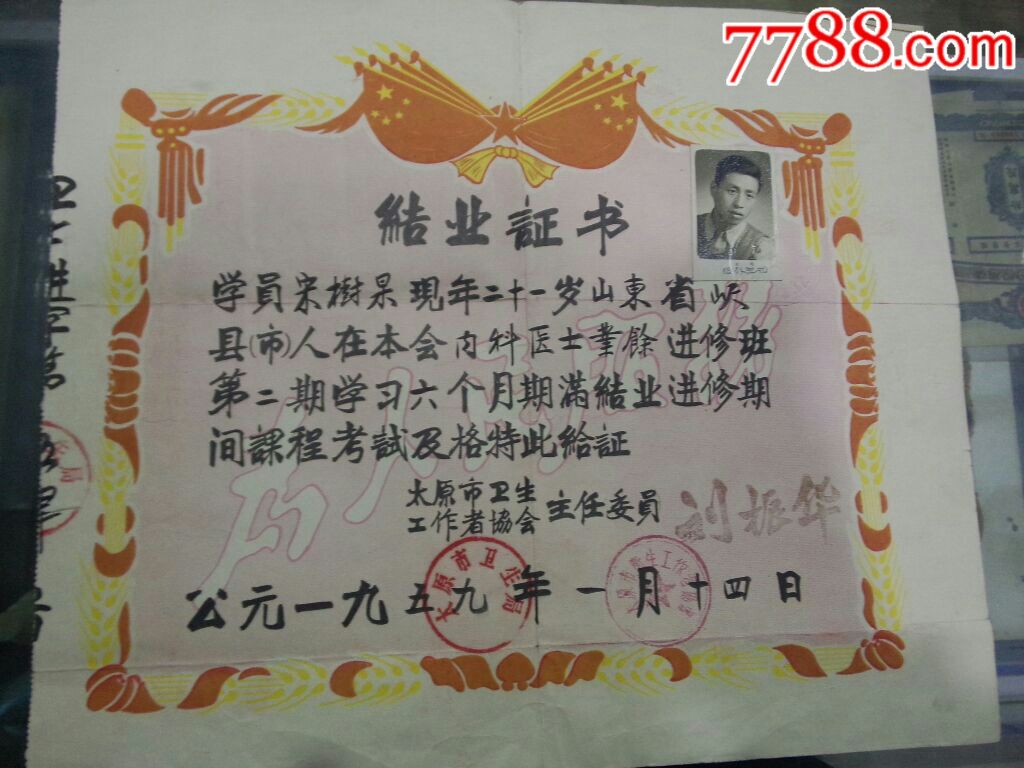 7788.com
結业証书
学員宋樹杲現年二十一岁山東省
县(市)人在本会内科医士業餘進修班
第二期学习六个月期滿結业進修期
间課程考試及格特此給証
太原市卫生
工作者協会
主任委員
刘振华
公元一九五九年一月十四日
太原市卫生局